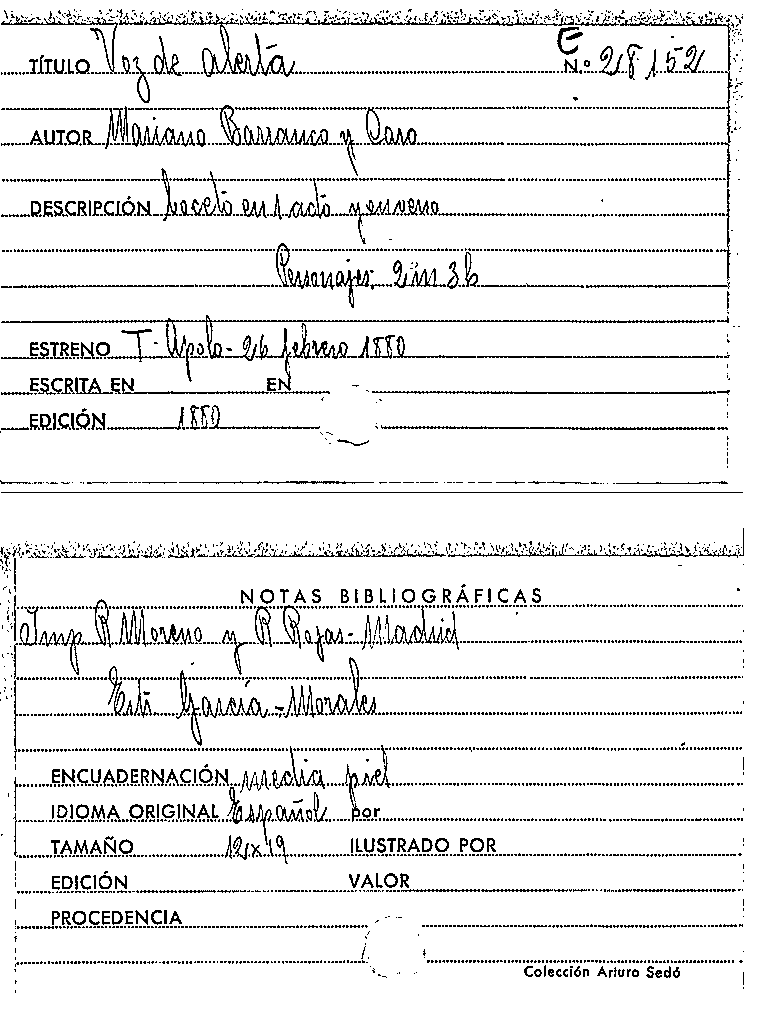 TÍTULO Voz de alerta
E
N.º 28152
AUTOR Mariano Barranco y Caro
DESCRIPCIÓN boceto en 1 acto y en verso
Personajes: 2 m 3 h
ESTRENO T. Apolo - 26 febrero 1880
ESCRITA EN EN
EDICIÓN 1880
NOTAS BIBLIOGRÁFICAS
Imp R Moreno y R Rojas - Madrid
García - Morales
ENCUADERNACIÓN media piel
IDIOMA ORIGINAL Español por
TAMAÑO 12x19 ILUSTRADO POR
EDICIÓN VALOR
PROCEDENCIA
Colección Arturo Sedó